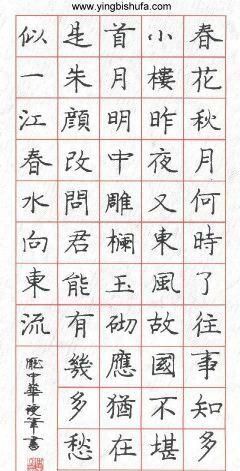 www.yingbishufa.com
春花秋月何時了往事知多
小樓昨夜又東風故國不堪
首月明中雕欄玉砌應猶在
是朱顏改問君能有幾多愁
似一江春水向東流
龐中華硬筆書